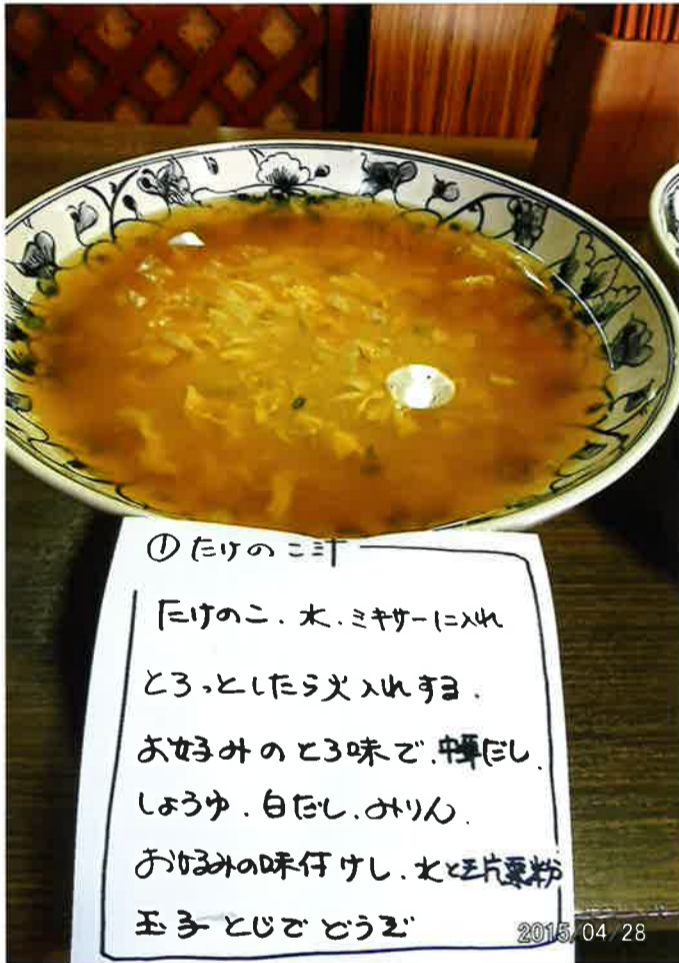 ① たけのこ汁
たけのこ、水、ミキサーに入れ
とろっとしたら火入れする.
お好みのとろ味で、中華だし、
しょうゆ、白だし、みりん.
お好みの味付けし、水と片栗粉
玉子とじでどうぞ
2015/04/28